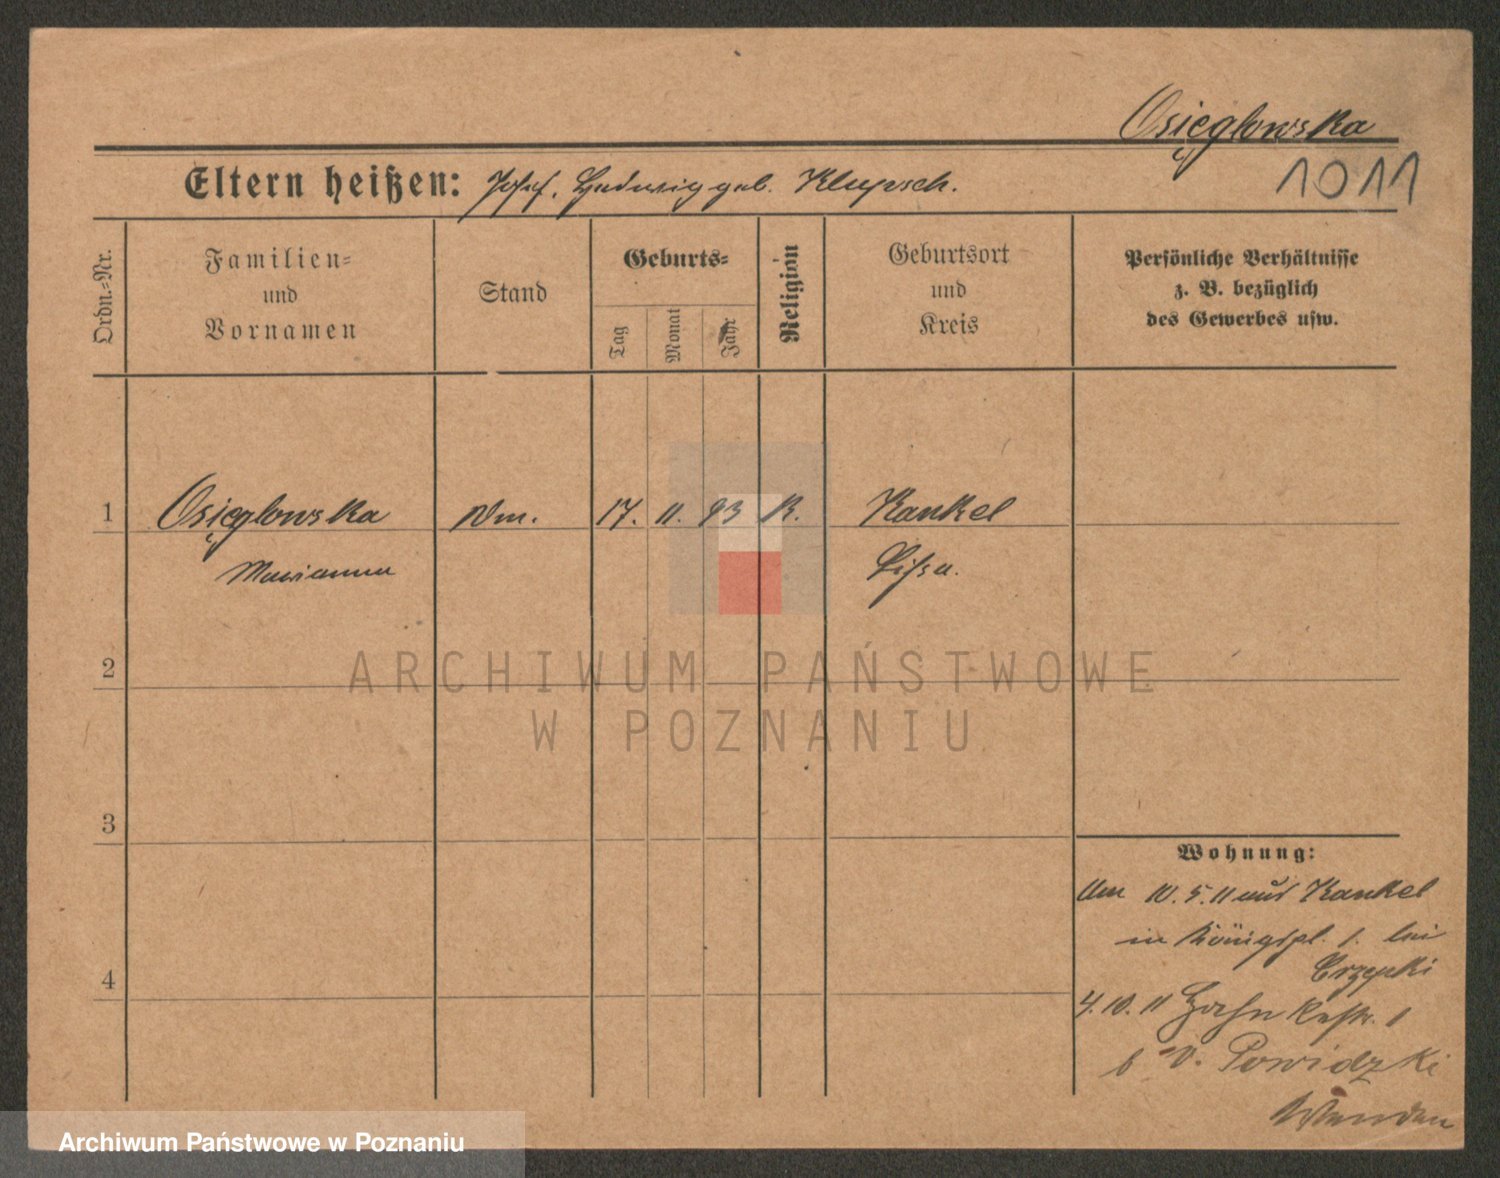 Osięglowska
1011
Eltern heißen: Josef, Hedwig geb. Klupsch.
Ordn.-Nr.
Familien-
und
Vornamen
Stand
Geburts-
Tag
Monat
Jahr
Religion
Geburtsort
und
Kreis
Persönliche Verhältnisse
z. B. bezüglich
des Gewerbes usw.
1 Osięglowska 17. 11. 93 K. Kankel
Marianna Lissa.
2
3
4
Wohnung:
Am 10.5.11 aus Kankel
in Königspl. 1. bei
4.10.11
b v. Powidzki
Wenden
ARCHIWUM PAŃSTWOWE
W POZNANIU
Archiwum Państwowe w Poznaniu